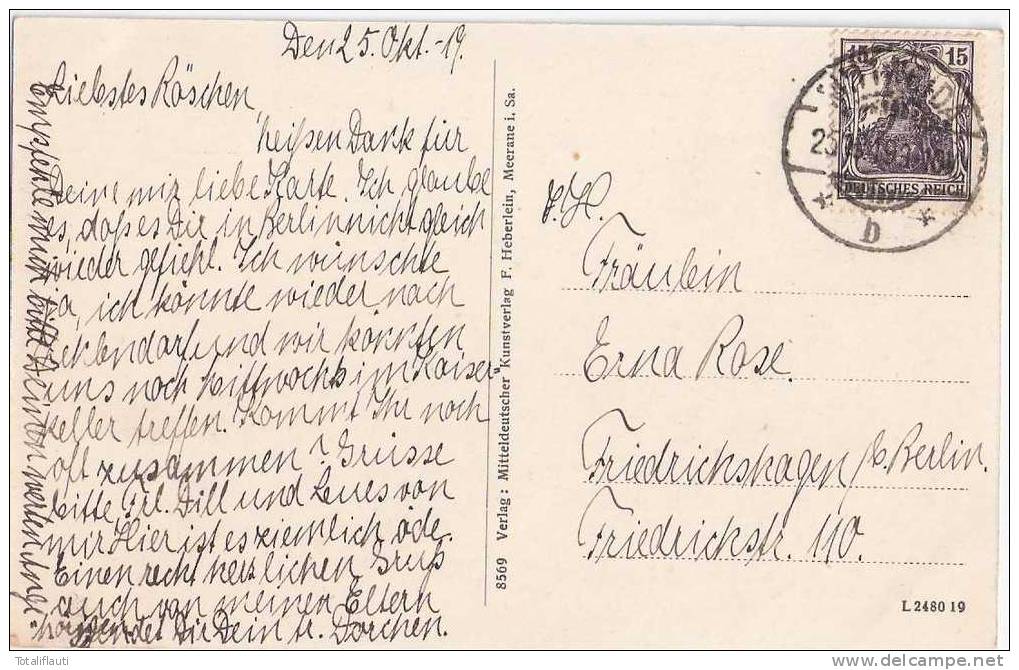 Den 25. Okt. - 19.
Liebstes Röschen
heißen Dank für
Deine mir liebe Karte. Ich glaube
es, daß es Dir in Berlin nicht gleich
wieder gefiehl. Ich wünschte
ja, ich könnte wieder nach
und wir könnten
uns noch Mittwochs im Kaiser-
keller treffen. Kommt Ihr noch
oft zusammen? Grüsse
bitte Frl. Dill und von
mir Hier ist es ziemlich öde.
Einen recht herzlichen Gruß
auch von meinen Eltern
sendet Dir Dein tr. Dorchen.
Empfiehl mich bitte Deinen werten Ange-
hörigen
8569 Verlag: Mitteldeutscher Kunstverlag F. Heberlein, Meerane i. Sa.
15 15
DEUTSCHES REICH
b
Fräulein
Erna Rose.
Friedrichshagen b. Berlin.
Friedrichstr. 110.
L 2480 19
Totaliflauti
www.delcampe.net